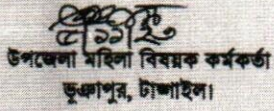 উপজেলা মহিলা বিষয়ক কর্মকর্তা
ভূঞাপুর, টাঙ্গাইল।